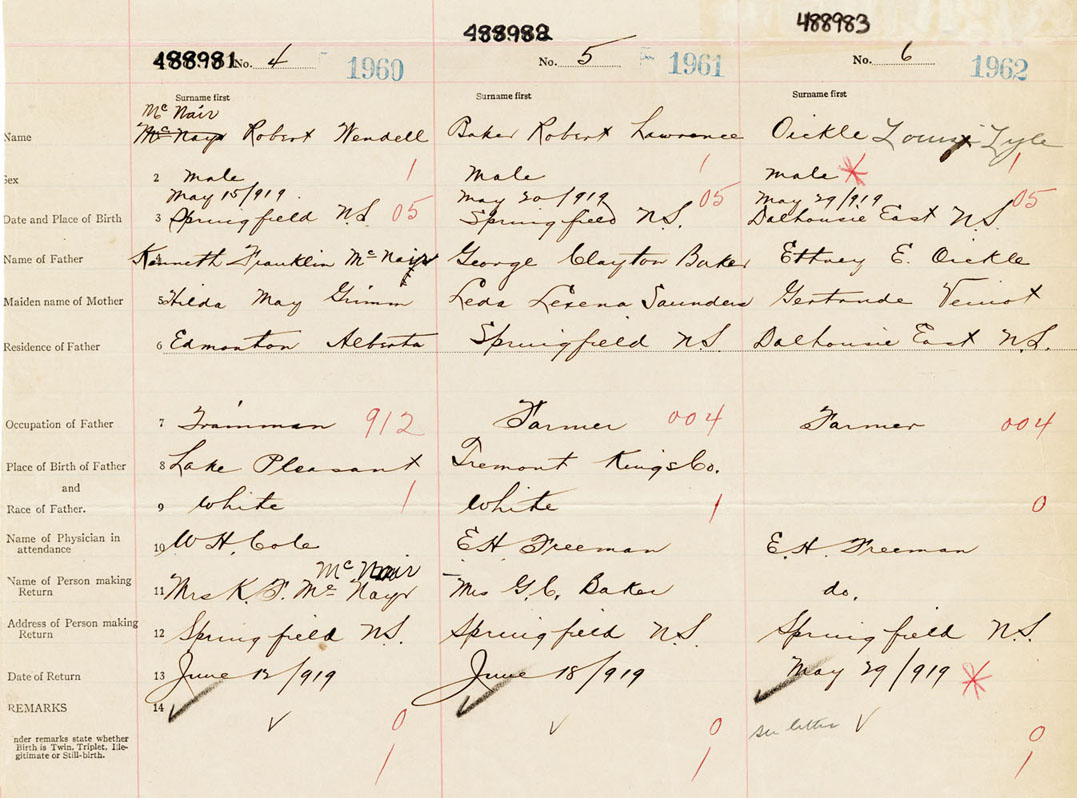 488981 488982 488983
No. 4 1960 No. 5 1961 No. 6 1962
Surname first Surname first Surname first
Mc Nair
Name Mc Nayr Robert Wendell Baker Robert Lawrence Oickle Louis Lyle
Sex 2 male 1 male 1 male * 1
May 15/919 May 20/919 May 29/919
Date and Place of Birth 3 Springfield NS 05 Springfield N.S. 05 Dalhousie East N.S. 05
Name of Father 4 Kenneth Franklin Mc Nair George Clayton Baker Ethney E. Oickle
Maiden name of Mother 5 Hilda May Grimm Leda Lexena Saunders Gertrude Veniot
Residence of Father 6 Edmonton Alberta Springfield N.S. Dalhousie East N.S.
Occupation of Father 7 Trainman 912 Farmer 004 Farmer 004
Place of Birth of Father 8 Lake Pleasant Tremont Kings Co.
and
Race of Father. 9 White 1 White 1 0
Name of Physician in
attendance 10 W H. Cole E H Freeman E. H. Freeman
Mc Nair
Name of Person making
Return 11 Mrs K. F. Mc Nayr Mrs G. C. Baker do.
Address of Person making
Return 12 Springfield N.S. Springfield N.S. Springfield N.S.
Date of Return 13 June 12/919 June 18/919 May 29/919 *
REMARKS 14 0 0 see letter 0
nder remarks state whether
Birth is Twin, Triplet, Ille-
gitimate or Still-birth. 1 1 1